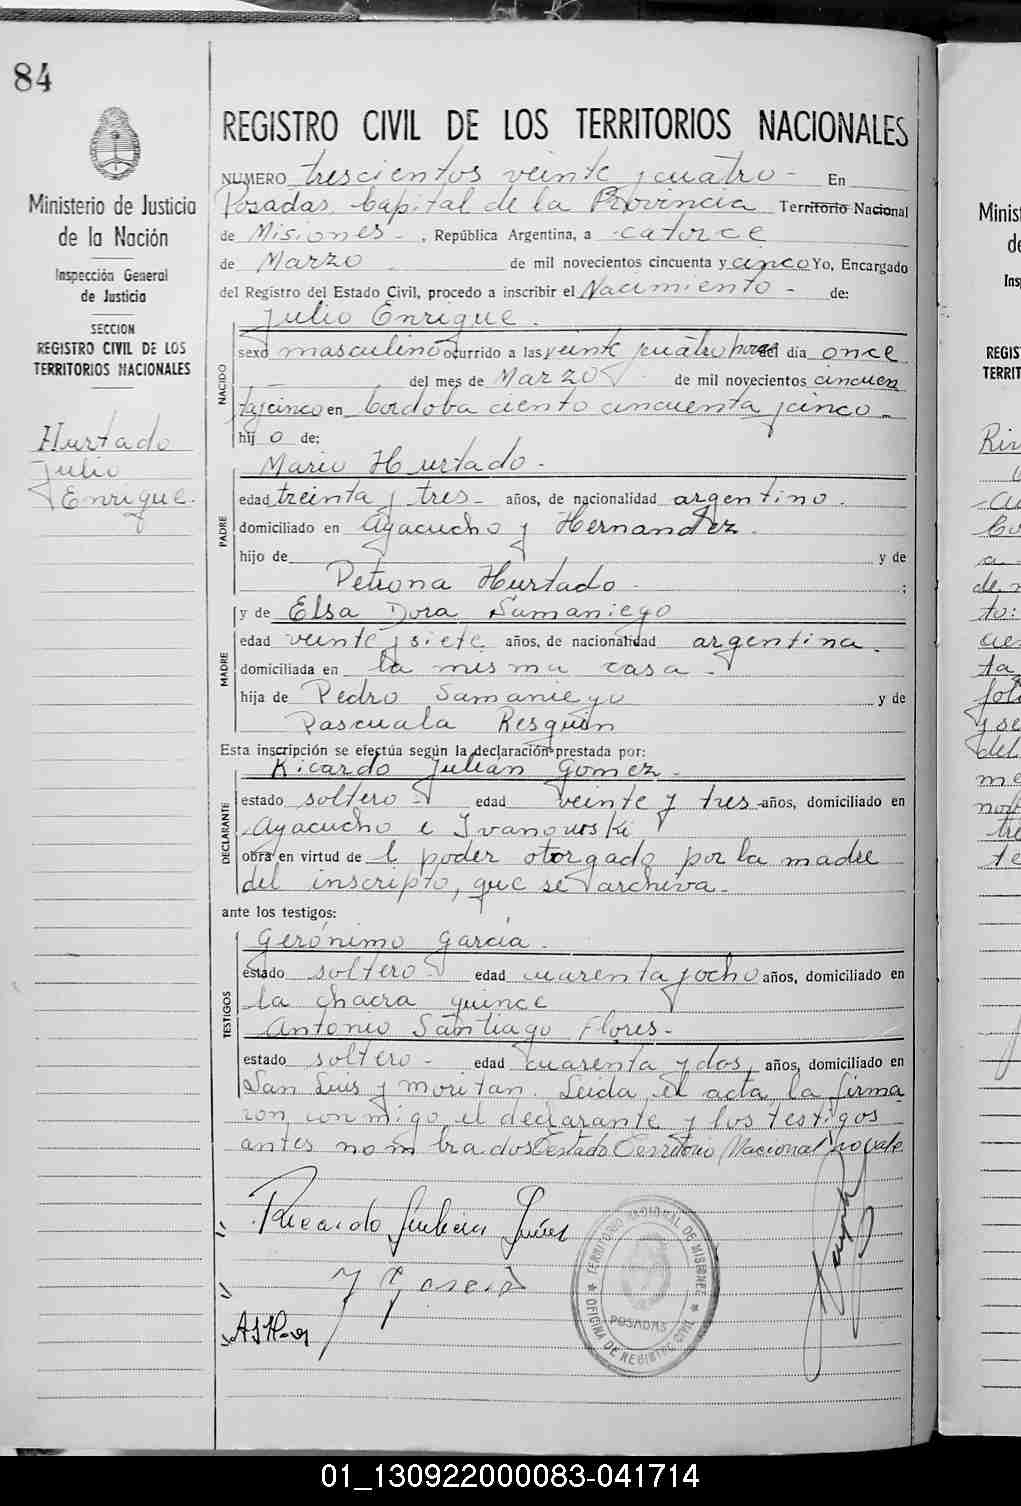 84
Ministerio de Justicia
de la Nación
Inspección General
de Justicia
SECCION
REGISTRO CIVIL DE LOS
TERRITORIOS NACIONALES
Hurtado
Julio
Enrique.
REGISTRO CIVIL DE LOS TERRITORIOS NACIONALES
NUMERO trescientos veinte y cuatro - En
Posadas, Capital de la Provincia Territorio Nacional
de Misiones - , República Argentina, a catorce
de Marzo de mil novecientos cincuenta y cinco Yo, Encargado
del Registro del Estado Civil, procedo a inscribir el Nacimiento - de:
Julio Enrique.
NACIDO
sexo masculino ocurrido a las veinte y cuatro horas del día once
del mes de Marzo de mil novecientos cincuen
ta y cinco en Cordoba ciento cincuenta y cinco -
hij o de:
PADRE
Mario Hurtado -
edad treinta y tres - años, de nacionalidad argentino.
domiciliado en Ayacucho y Hernandez.
hijo de y de
Petrona Hurtado - ;
MADRE
y de Elsa Dora Samaniego
edad veinte y siete años, de nacionalidad argentina.
domiciliada en la misma casa -
hija de Pedro Samaniego y de
Pascuala Resquin
Esta inscripción se efectúa según la declaración prestada por:
DECLARANTE
Ricardo Julian Gomez -
estado soltero - edad veinte y tres - años, domiciliado en
Ayacucho e Ivanowski
obra en virtud de l poder otorgado por la madre
del inscripto, que se archiva -
ante los testigos:
TESTIGOS
Gerónimo García.
estado soltero - edad cuarenta y ocho años, domiciliado en
la chacra quince
Antonio Santiago Flores -
estado soltero - edad cuarenta y dos, años, domiciliado en
San Luis y moritan. Leida el acta, la firma
ron conmigo el declarante y los testigos
antes nombrados Testado Territorio Nacional no vale
Ricardo Julian
TERRITORIO NACIONAL DE MISIONES
POSADAS
OFICINA DE REGISTRO CIVIL
Minist
de
Ins
REGIS
TERRIT
01_130922000083-041714